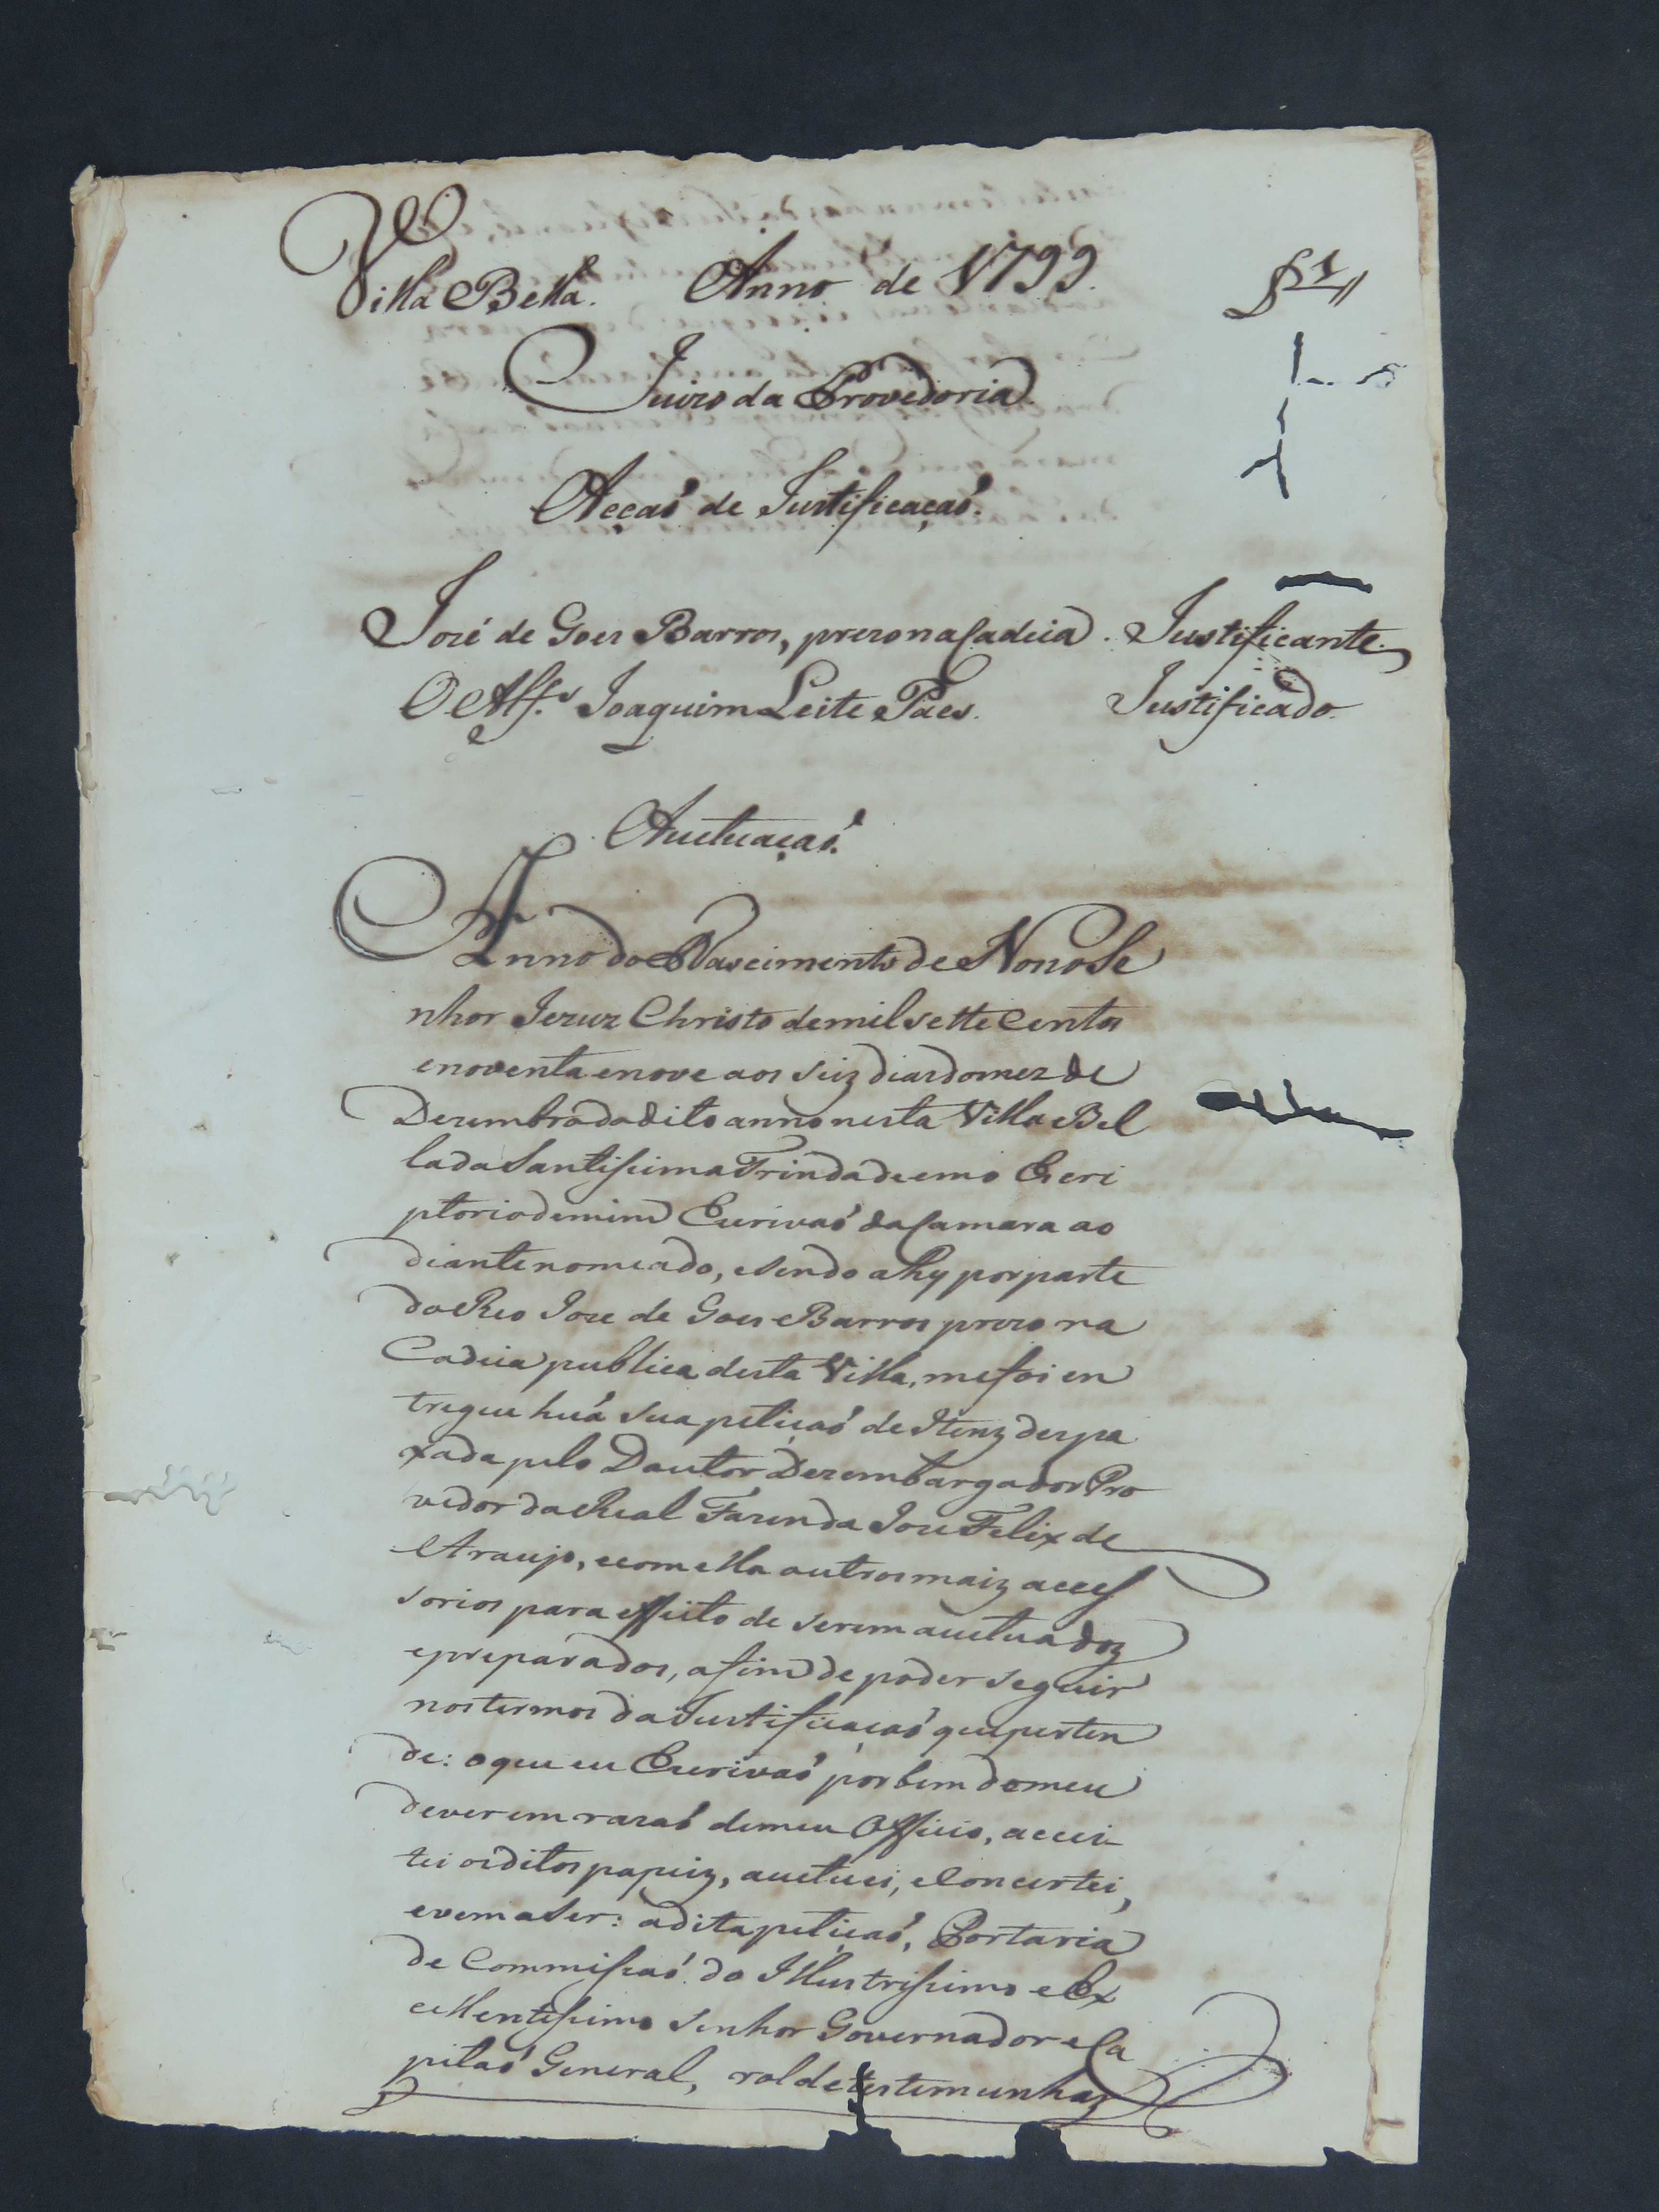 Villa Bella. Anno de 1799. f 1
Juizo da Provedoria
Acçaó de Justificaçaó.
José de Goes Barros, prezo na Cadeia. Justificante.
O Alf.s Joaquim Leite Paes. Justificado.
Auctuaçaó.
Anno do Nascimento de Nosso Se
nhor Jezuz Christo demil sette centos
enoventa enove aos seiz dias domez de
Dezembro do dito anno nesta Villa Bel
la da Santissima Trindade emo Escri
ptorio demim Escrivaó da Camara ao
diante nomeado, esendo ahy por parte
do Reo Joze de Goes Barros prezo na
Cadeia publica desta Villa, mefoi en
tregue huá sua petiçaó de Itenz despa
xada pelo Doutor Dezembargador Pro
vedor da Real Fazenda Joze Felix de
Araujo, ecom ella outros maiz acces
sorios para effeito de serem auctuadoz
epreparados, afim de poder seguir
nos termos da Justificaçaó que perten
de: oque eu Escrivaó por bem domeu
dever em razaó demeu Officio, accei
tei os ditos papeiz, auctuei, e Concertei,
evem a Ser: adita petiçaó, Portaria
de Commissaó do Illustrissimo e Ex
cellentissimo Senhor Governador e Ca
pitaó General, rol de testemunhaz